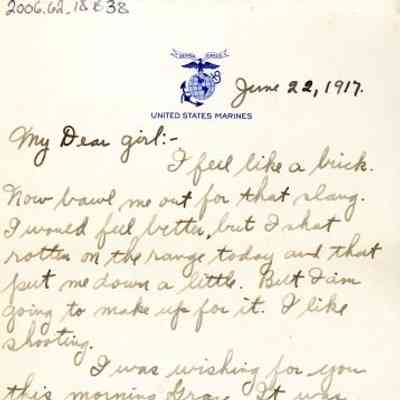 2006.62.18 & 38
SEMPER FIDELIS
June 22, 1917.
UNITED STATES MARINES
My Dear girl:-
I feel like a brick.
Now bawl me out for that slang.
I would feel better, but I shot
rotten on the range today and that
put me down a little. But I am
going to make up for it. I like
shooting.
I was wishing for you
this morning Grace. It was